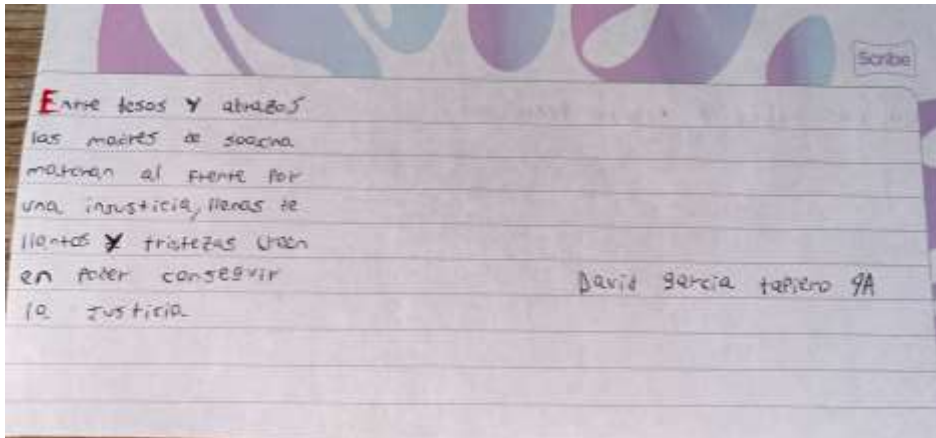 Scribe
Entre besos y abrazos
las madres de soacha
marchan al frente por
una injusticia, llenas de
llantos y tristezas creen
en poder conseguir
la justicia
David garcia tapiero 9A